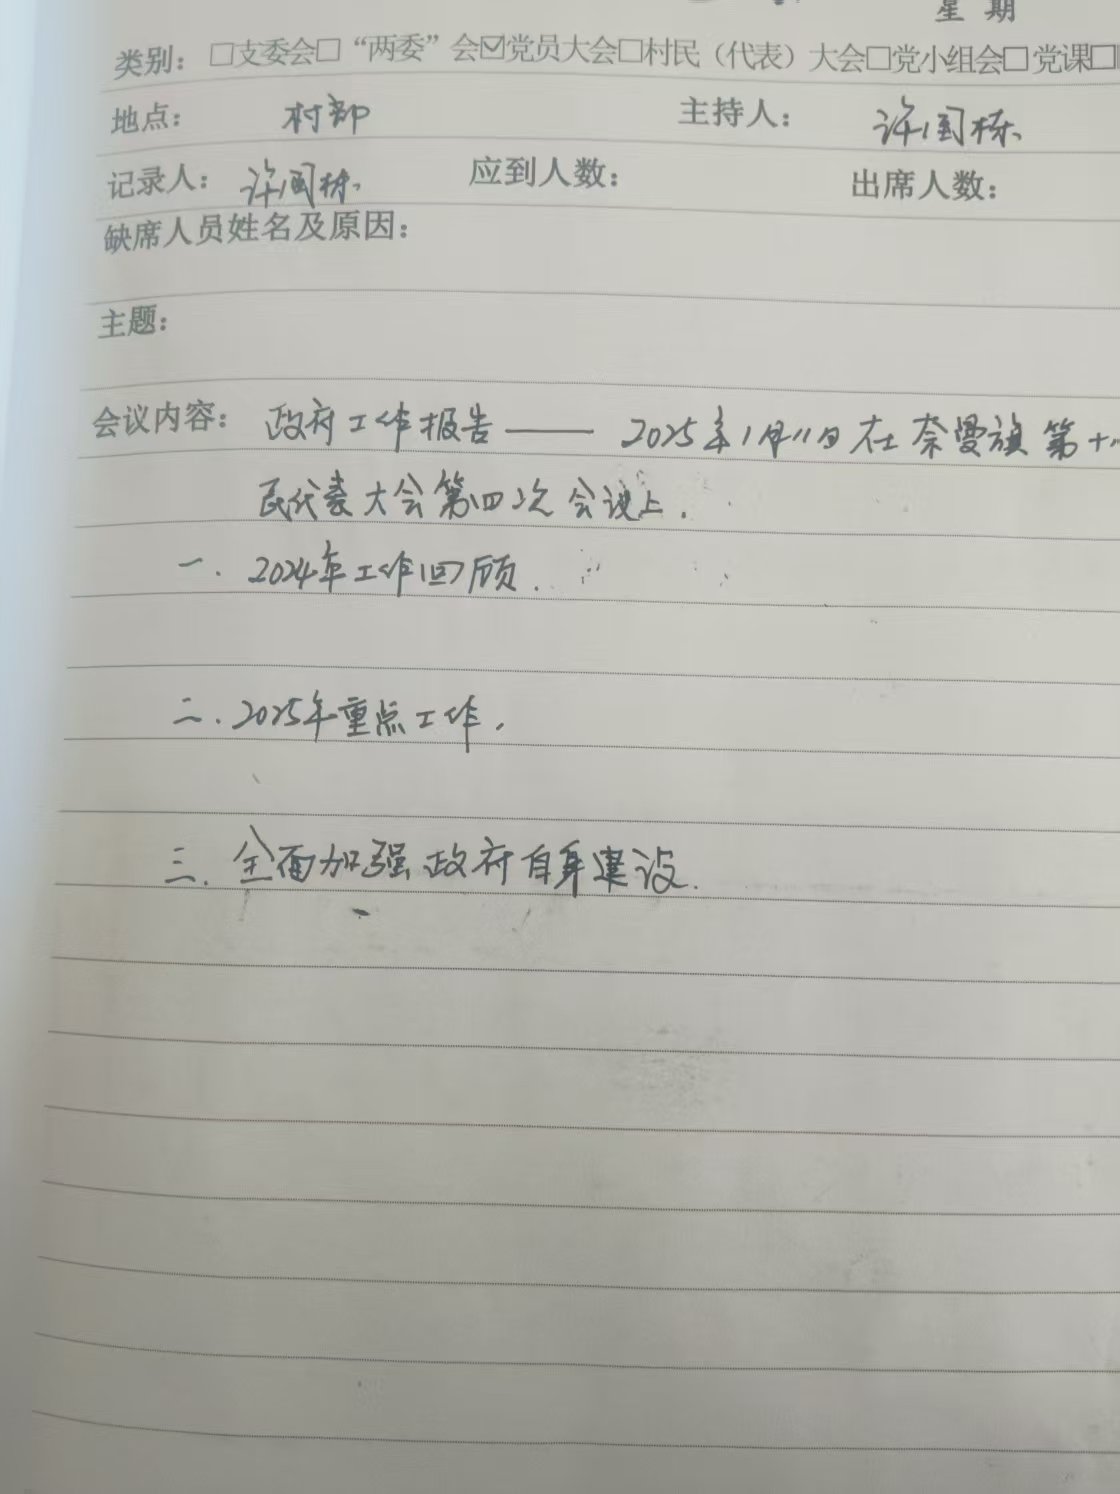 星 期
类别：□支委会□“两委”会☑党员大会□村民（代表）大会□党小组会□党课□
地点： 村部 主持人： 许国栋
记录人： 许国栋 应到人数： 出席人数：
缺席人员姓名及原因：
主题：
会议内容： 政府工作报告—— 2025年1月11日在奈曼旗第十
民代表大会第四次会议上.
一. 2024年工作回顾.
二. 2025年重点工作.
三. 全面加强政府自身建设.